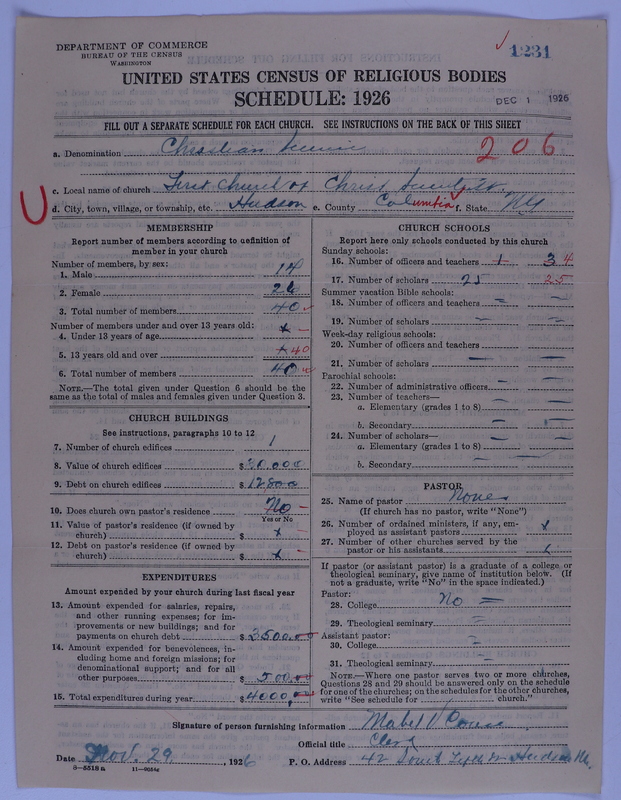 DEPARTMENT OF COMMERCE
BUREAU OF THE CENSUS
WASHINGTON
1231
UNITED STATES CENSUS OF RELIGIOUS BODIES
SCHEDULE: 1926
DEC 1 1926
FILL OUT A SEPARATE SCHEDULE FOR EACH CHURCH. SEE INSTRUCTIONS ON THE BACK OF THIS SHEET
a. Denomination Christian Science 206
c. Local name of church First Church of Christ Scientist
d. City, town, village, or township, etc. Hudson e. County Columbia f. State NY
MEMBERSHIP
Report number of members according to definition of
member in your church
Number of members, by sex:
1. Male 14
2. Female 26
3. Total number of members 40
Number of members under and over 13 years old:
4. Under 13 years of age x
5. 13 years old and over x 40
6. Total number of members 40
NOTE.—The total given under Question 6 should be the
same as the total of males and females given under Question 3.
CHURCH BUILDINGS
See instructions, paragraphs 10 to 12
7. Number of church edifices 1
8. Value of church edifices $
9. Debt on church edifices $
10. Does church own pastor's residence No
Yes or No
11. Value of pastor's residence (if owned by
church) $ x
12. Debt on pastor's residence (if owned by
church) $ x
EXPENDITURES
Amount expended by your church during last fiscal year
13. Amount expended for salaries, repairs,
and other running expenses; for im-
provements or new buildings; and for
payments on church debt $ 3500.00
14. Amount expended for benevolences, in-
cluding home and foreign missions; for
denominational support; and for all
other purposes $ 500.00
15. Total expenditures during year $ 4000.00
CHURCH SCHOOLS
Report here only schools conducted by this church
Sunday schools:
16. Number of officers and teachers 3 4
17. Number of scholars 25 25
Summer vacation Bible schools:
18. Number of officers and teachers —
19. Number of scholars —
Week-day religious schools:
20. Number of officers and teachers
21. Number of scholars —
Parochial schools:
22. Number of administrative officers —
23. Number of teachers—
a. Elementary (grades 1 to 8) —
b. Secondary —
24. Number of scholars—
a. Elementary (grades 1 to 8) —
b. Secondary —
PASTOR
25. Name of pastor None
(If church has no pastor, write "None")
26. Number of ordained ministers, if any, em-
ployed as assistant pastors x
27. Number of other churches served by the
pastor or his assistants
If pastor (or assistant pastor) is a graduate of a college or
theological seminary, give name of institution below. (If
not a graduate, write "No" in the space indicated.)
Pastor:
28. College No
29. Theological seminary
Assistant pastor:
30. College
31. Theological seminary
NOTE.—Where one pastor serves two or more churches,
Questions 28 and 29 should be answered only on the schedule
for one of the churches; on the schedules for the other churches,
write "See schedule for church."
Signature of person furnishing information Mabel
Official title Clerk
Date Nov. 29, 1926 P. O. Address 42 South Hudson NY
8—5518 a 11—9054a